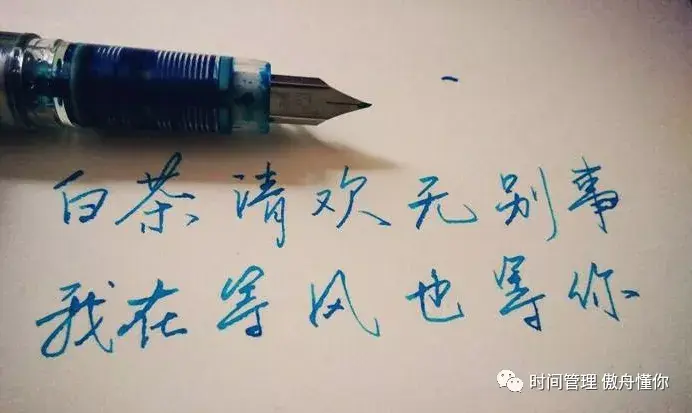 白茶清欢无别事
我在等风也等你
时间管理 傲舟懂你